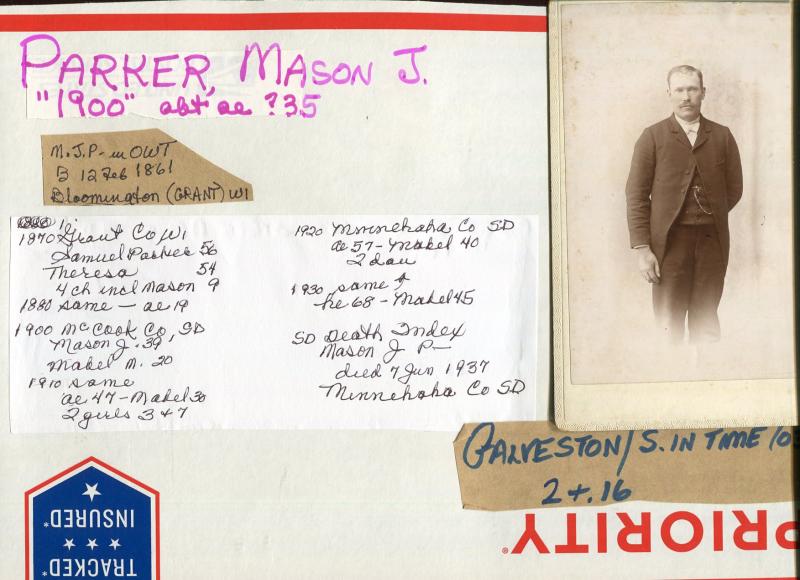 PARKER, MASON J.
"1900" abt ae ?35
M.J.P- in OWT
B 12 Feb 1861
Bloomington (GRANT) WI
1870 Grant Co WI
Samuel Parker 56
Theresa 54
4 ch incl Mason 9
1880 same - ae 19
1900 McCook Co, SD
Mason J. 39,
Mabel M. 20
1910 same
ae 47 - Mabel 30
2 girls 3 & 7
1920 Minnehaha Co SD
ae 57 - Mabel 40
2 dau
1930 same ↑
he 68 - Mabel 45
SD Death Index
Mason J P-
died 7 Jun 1937
Minnehaha Co SD
GALVESTON/S. IN TIME/
2+.16
PRIORITY
TRACKED
INSURED